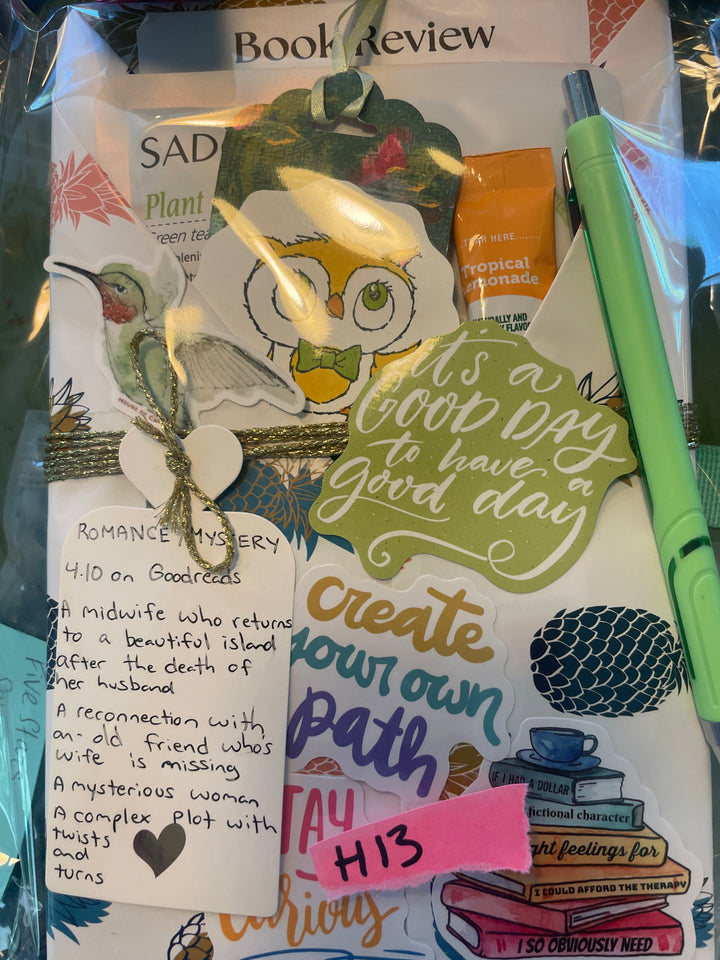 Book Review
SAD
Plant
Green tea
HERE........
Tropical
Lemonade
NATURALLY AND
HOUSE OF
It's a
GOOD DAY
to have a
good day
ROMANCE MYSTERY
4.10 on Goodreads
A midwife who returns
to a beautiful island
after the death of
her husband
A reconnection with
an old friend who's
wife is missing
A mysterious woman
A complex plot with
twists
and
turns
create
your own
path
STAY
curious
H13
IF I HAD A DOLLAR
fictional character
ght feelings for
I COULD AFFORD THE THERAPY
I SO OBVIOUSLY NEED
Five Stars